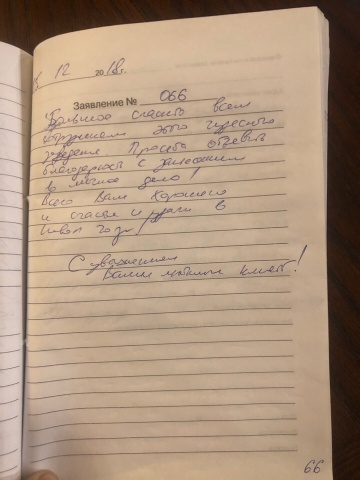 12 2018г.
Заявление № 066
Большое спасибо всем
сотрудникам этого чудесного
заведения Просьба объявить
благодарность с занесением
в личное дело!
Всего Вам Хорошего
и счастья и удачи в
Новом году!
С уважением
Ваши любимый клиент!
66